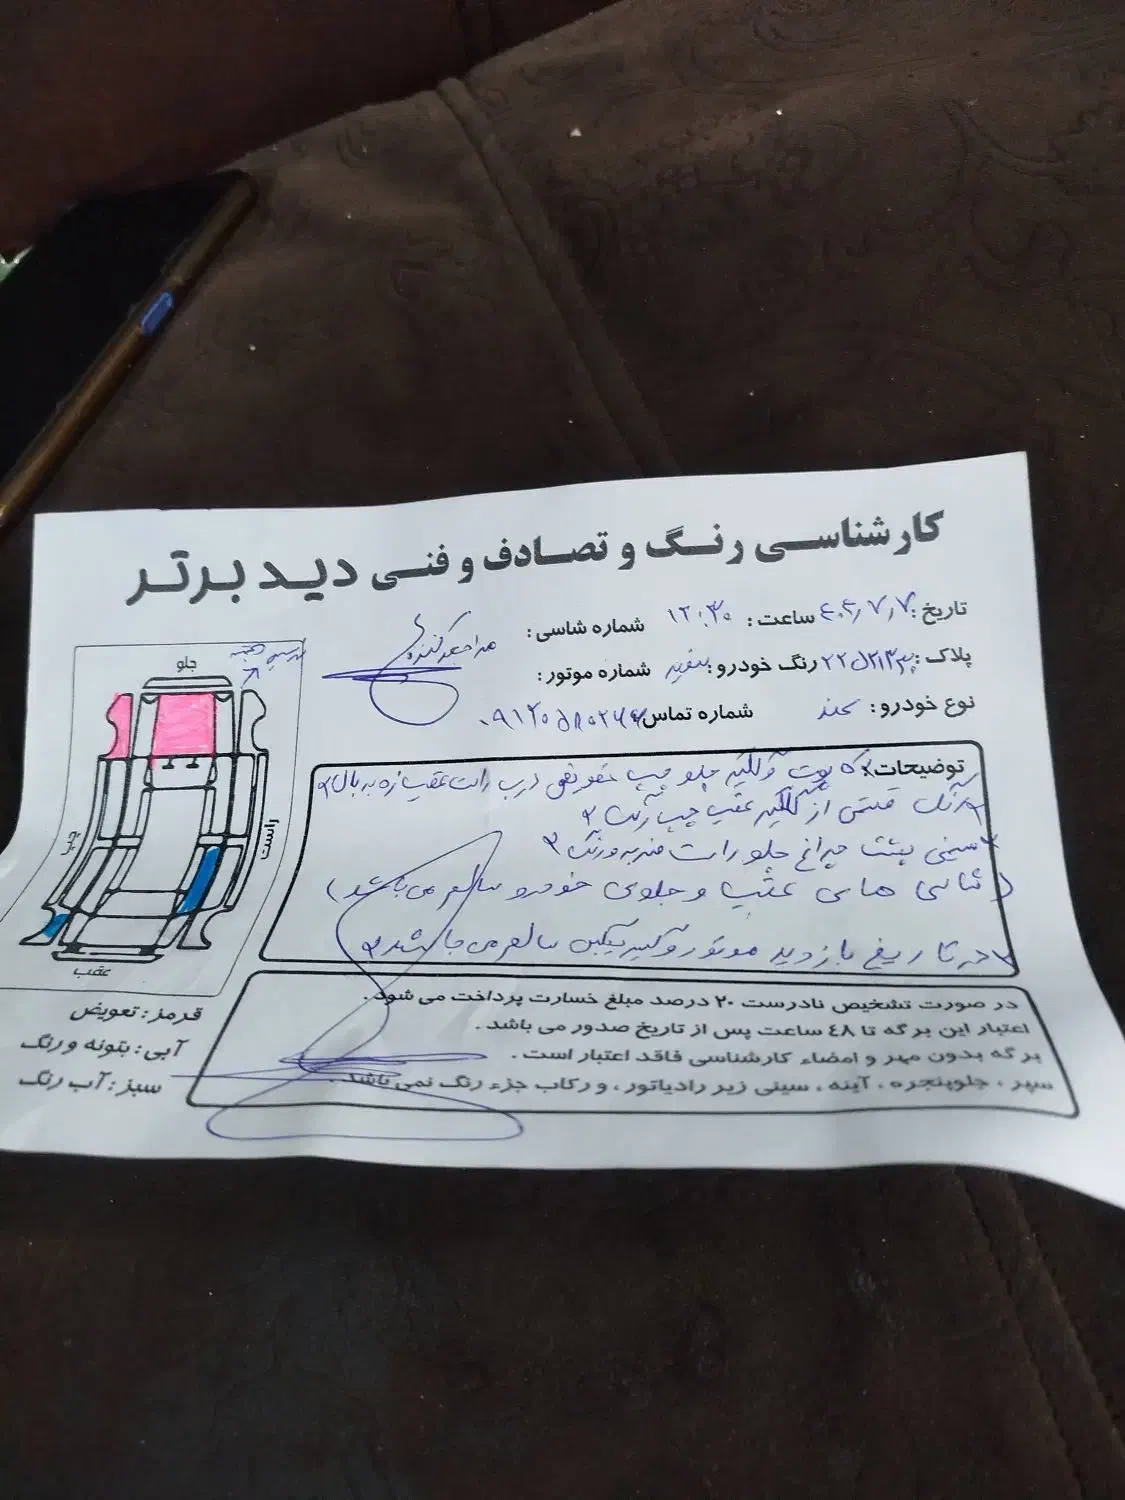 کارشناسی رنگ و تصادف و فنی دید برتر
تاریخ: ۴۰۴/۷/۷ ساعت: ۱۲:۳۰ شماره شاسی: مراجعه کننده
پلاک: رنگ خودرو: سفید شماره موتور:
نوع خودرو: سمند شماره تماس:
جلو
چپ
راست
عقب
توضیحات: کاپوت و گلگیر جلو چپ تعویض درب راست عقب
رنگ قسمتی از گلگیر عقب چپ رنگ
سینی پشت چراغ جلو راست ضربه و رنگ
(شاسی های عقب و جلوی خودرو سالم می باشد)
در تاریخ بازدید موتور و گیربکس سالم می باشد
در صورت تشخیص نادرست ۲۰ درصد مبلغ خسارت پرداخت می شود.
اعتبار این برگه تا ٤٨ ساعت پس از تاریخ صدور می باشد.
برگه بدون مهر و امضاء کارشناسی فاقد اعتبار است.
سپر، جلوپنجره، آینه، سینی زیر رادیاتور، و رکاب جزء رنگ نمی باشد.
قرمز: تعویض
آبی: بتونه ورنگ
سبز: آب رنگ